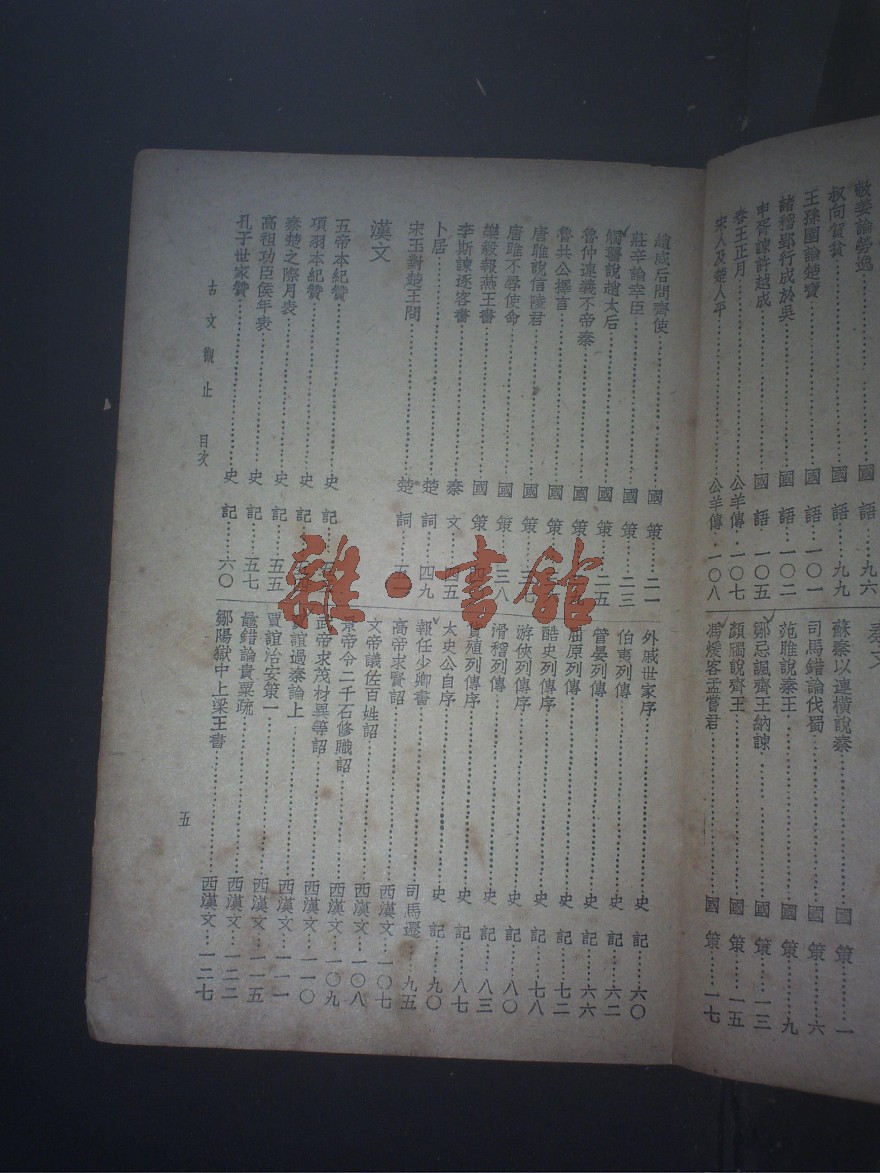 敬姜論勞逸……國語…九六
叔向賀貧……國語…九九
王孫圉論楚寶……國語…一〇一
諸稽郢行成於吳……國語…一〇二
申胥諫許越成……國語…一〇五
春王正月……公羊傳…一〇七
宋人及楚人平……公羊傳…一〇八
秦文
蘇秦以連橫說秦……國策……一
司馬錯論伐蜀……國策……六
范雎說秦王……國策……九
鄒忌諷齊王納諫……國策…一三
顏斶說齊王……國策…一五
馮煖客孟嘗君……國策…一七
趙威后問齊使……國策…二一
莊辛論幸臣……國策…二三
觸讋說趙太后……國策…二五
魯仲連義不帝秦……國策
魯共公擇言……國策
唐雎說信陵君……國策
唐雎不辱使命……國策…三八
樂毅報燕王書……國策
李斯諫逐客書……秦文…四五
卜居……楚詞…四九
宋玉對楚王問……楚詞…五一
漢文
五帝本紀贊……史記
項羽本紀贊……史記
秦楚之際月表……史記…五五
高祖功臣侯年表……史記…五七
孔子世家贊……史記…六〇
外戚世家序……史記…六〇
伯夷列傳……史記…六二
管晏列傳……史記…六六
屈原列傳……史記…七二
酷史列傳序……史記…七八
游俠列傳序……史記…八〇
滑稽列傳……史記…八三
貨殖列傳序……史記…八七
太史公自序……史記…九〇
報任少卿書……司馬遷…九五
高帝求賢詔……西漢文…一〇七
文帝議佐百姓詔……西漢文…一〇八
景帝令二千石修職詔……西漢文…一〇九
武帝求茂材異等詔……西漢文…一一〇
賈誼過秦論上……西漢文…一一一
賈誼治安策一……西漢文…一一五
鼂錯論貴粟疏……西漢文…一二二
鄒陽獄中上梁王書……西漢文…一二七
古文觀止 目次
五
雜·書館